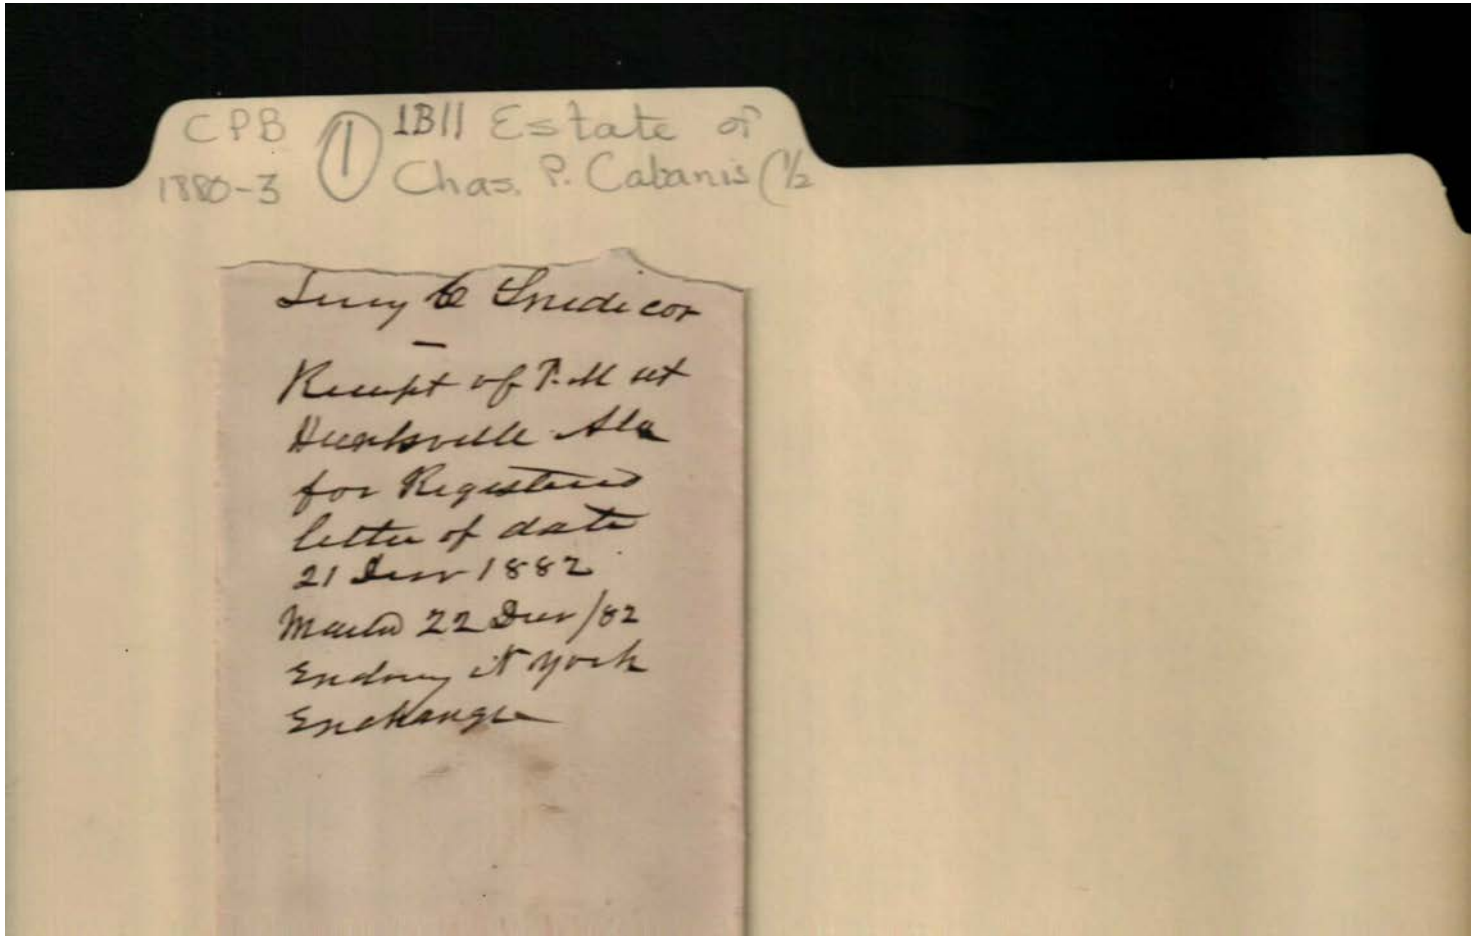 CPB
1880-3
1
1B11 Estate of
Chas. P. Cabanis (1/2
Lucy C Snedicor
Receipt of P. M at
Huntsville Ala
for Registered
letter of date
21 Decr 1882
Mailed 22 Decr /82
N York
Exchange